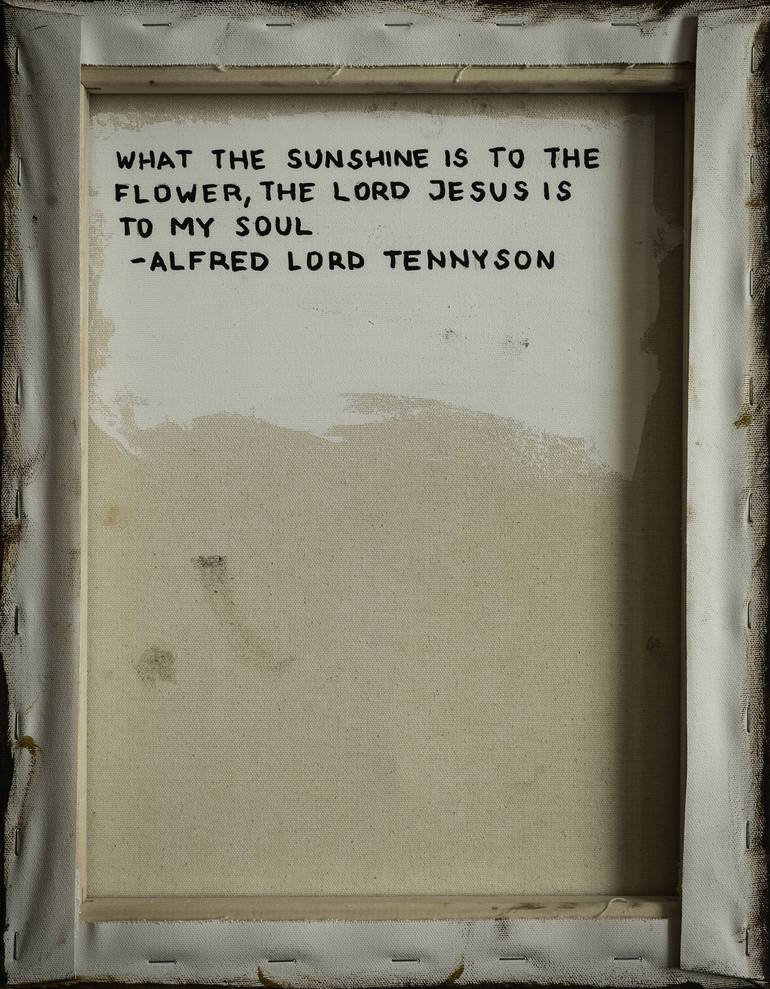 WHAT THE SUNSHINE IS TO THE
FLOWER, THE LORD JESUS IS
TO MY SOUL
-ALFRED LORD TENNYSON